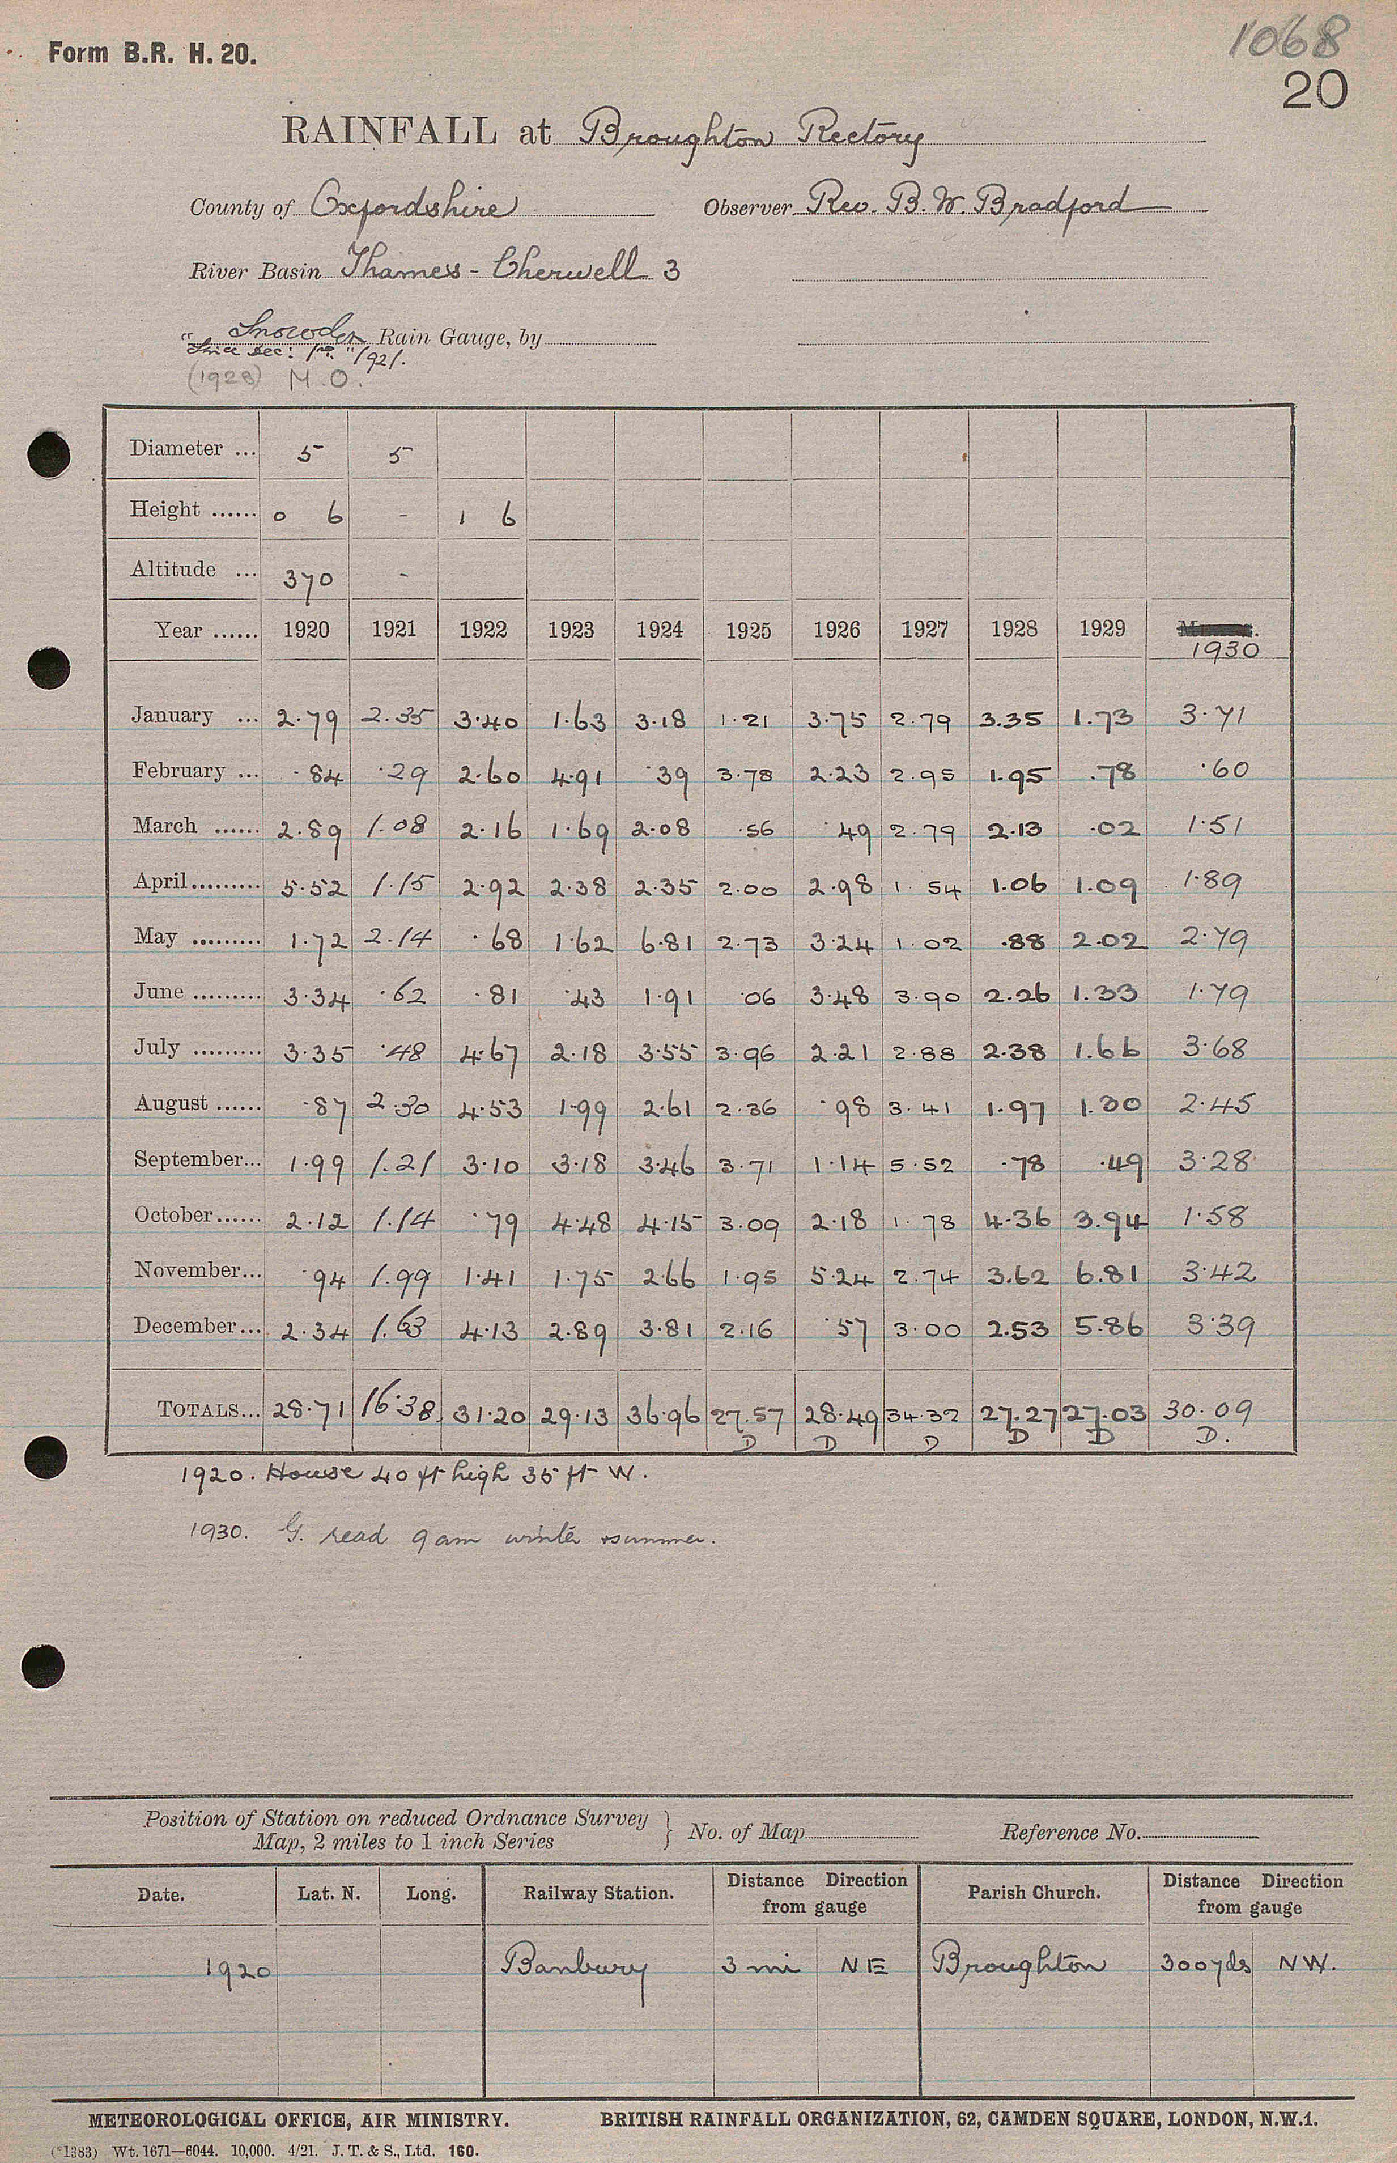 Form B.R. H. 20.
1068
20
RAINFALL at Broughton Rectory
County of Oxfordshire Observer Rev. B. W. Bradford
River Basin Thames - Cherwell 3
"Snowdon Rain Gauge, by
Since Dec: 1st" 1921.
(1928) M.O.
Diameter ... 5 5
Height ...... 0 6 - 1 6
Altitude ... 370 -
Year ...... 1920 1921 1922 1923 1924 1925 1926 1927 1928 1929 1930
January ... 2.79 2.35 3.40 1.63 3.18 1.21 3.75 2.79 3.35 1.73 3.71
February ... .84 .29 2.60 4.91 .39 3.78 2.23 2.95 1.95 .78 .60
March ...... 2.89 1.08 2.16 1.69 2.08 .56 .49 2.79 2.13 .02 1.51
April......... 5.52 1.15 2.92 2.38 2.35 2.00 2.98 1.54 1.06 1.09 1.89
May ......... 1.72 2.14 .68 1.62 6.81 2.73 3.24 1.02 .88 2.02 2.79
June ......... 3.34 .62 .81 .43 1.91 .06 3.48 3.90 2.26 1.33 1.79
July ......... 3.35 .48 4.67 2.18 3.55 3.96 2.21 2.88 2.38 1.66 3.68
August ...... .87 2.30 4.53 1.99 2.61 2.36 .98 3.41 1.97 1.30 2.45
September... 1.99 1.21 3.10 3.18 3.46 3.71 1.14 5.52 .78 .49 3.28
October...... 2.12 1.14 .79 4.48 4.15 3.09 2.18 1.78 4.36 3.94 1.58
November... .94 1.99 1.41 1.75 2.66 1.95 5.24 2.74 3.62 6.81 3.42
December... 2.34 1.63 4.13 2.89 3.81 2.16 .57 3.00 2.53 5.86 3.39
TOTALS... 28.71 16.38 31.20 29.13 36.96 27.57 28.49 34.32 27.27 27.03 30.09
D D D D D D.
1920. House 40 ft high 35 ft W.
1930. G. read 9am winter + summer.
Position of Station on reduced Ordnance Survey
Map, 2 miles to 1 inch Series } No. of Map Reference No.
Date. Lat. N. Long. Railway Station. Distance from gauge Direction Parish Church. Distance from gauge Direction
1920 Banbury 3 mi NE Broughton 300 yds NW.
METEOROLOGICAL OFFICE, AIR MINISTRY. BRITISH RAINFALL ORGANIZATION, 62, CAMDEN SQUARE, LONDON, N.W.1.
(*1383) Wt. 1671—6044. 10,000. 4/21. J. T. & S., Ltd. 160.